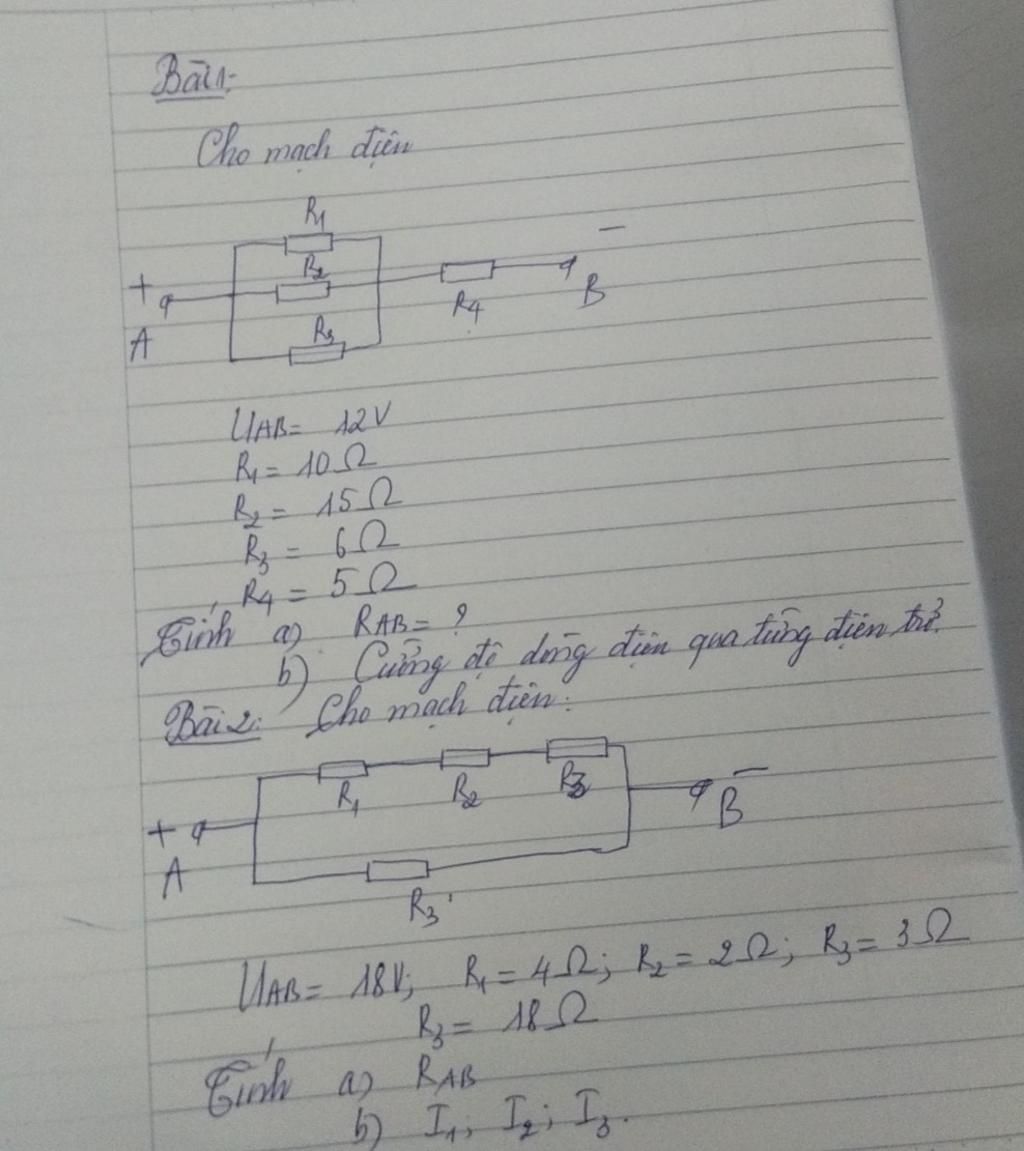 Bài 1:
Cho mạch điện
R1
R2
+
R3
A
R4
B
−
UAB = 12V
R1 = 10 Ω
R2 = 15 Ω
R3 = 6 Ω
R4 = 5 Ω
Tính a) RAB = ?
b) Cường độ dòng điện qua từng điện trở.
Bài 2: Cho mạch điện:
R1 R2 R3
+
A
B
−
R3'
UAB = 18V; R1 = 4 Ω; R2 = 2 Ω; R3 = 3 Ω
R3 = 18 Ω
Tính a) RAB
b) I1; I2; I3.